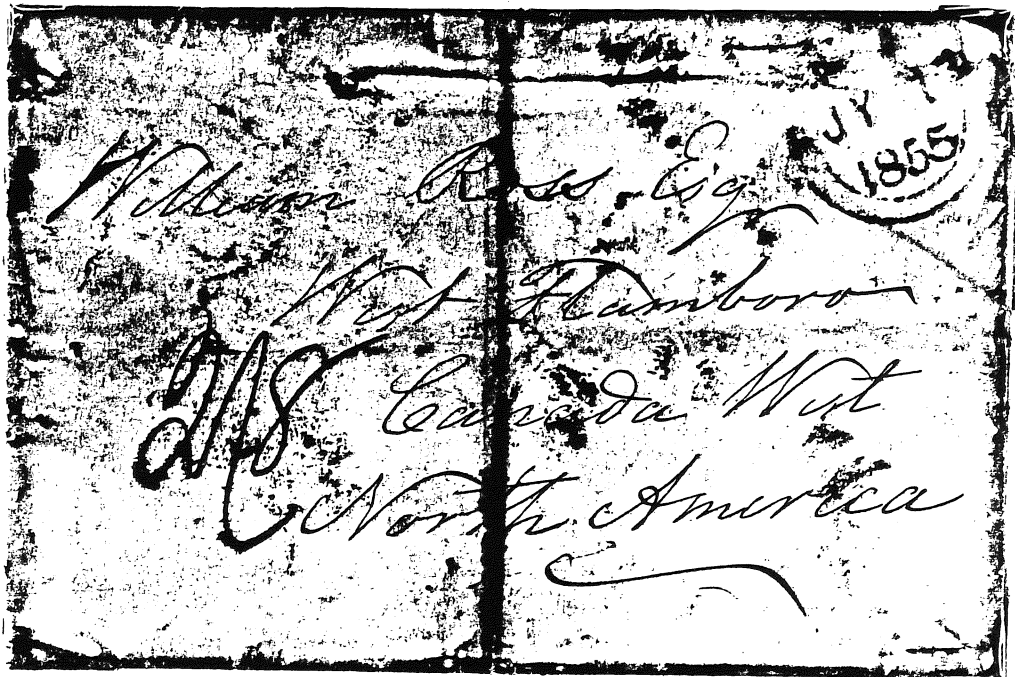 JY
1855
William Ross Esq
West Flamboro
Canada West
North America